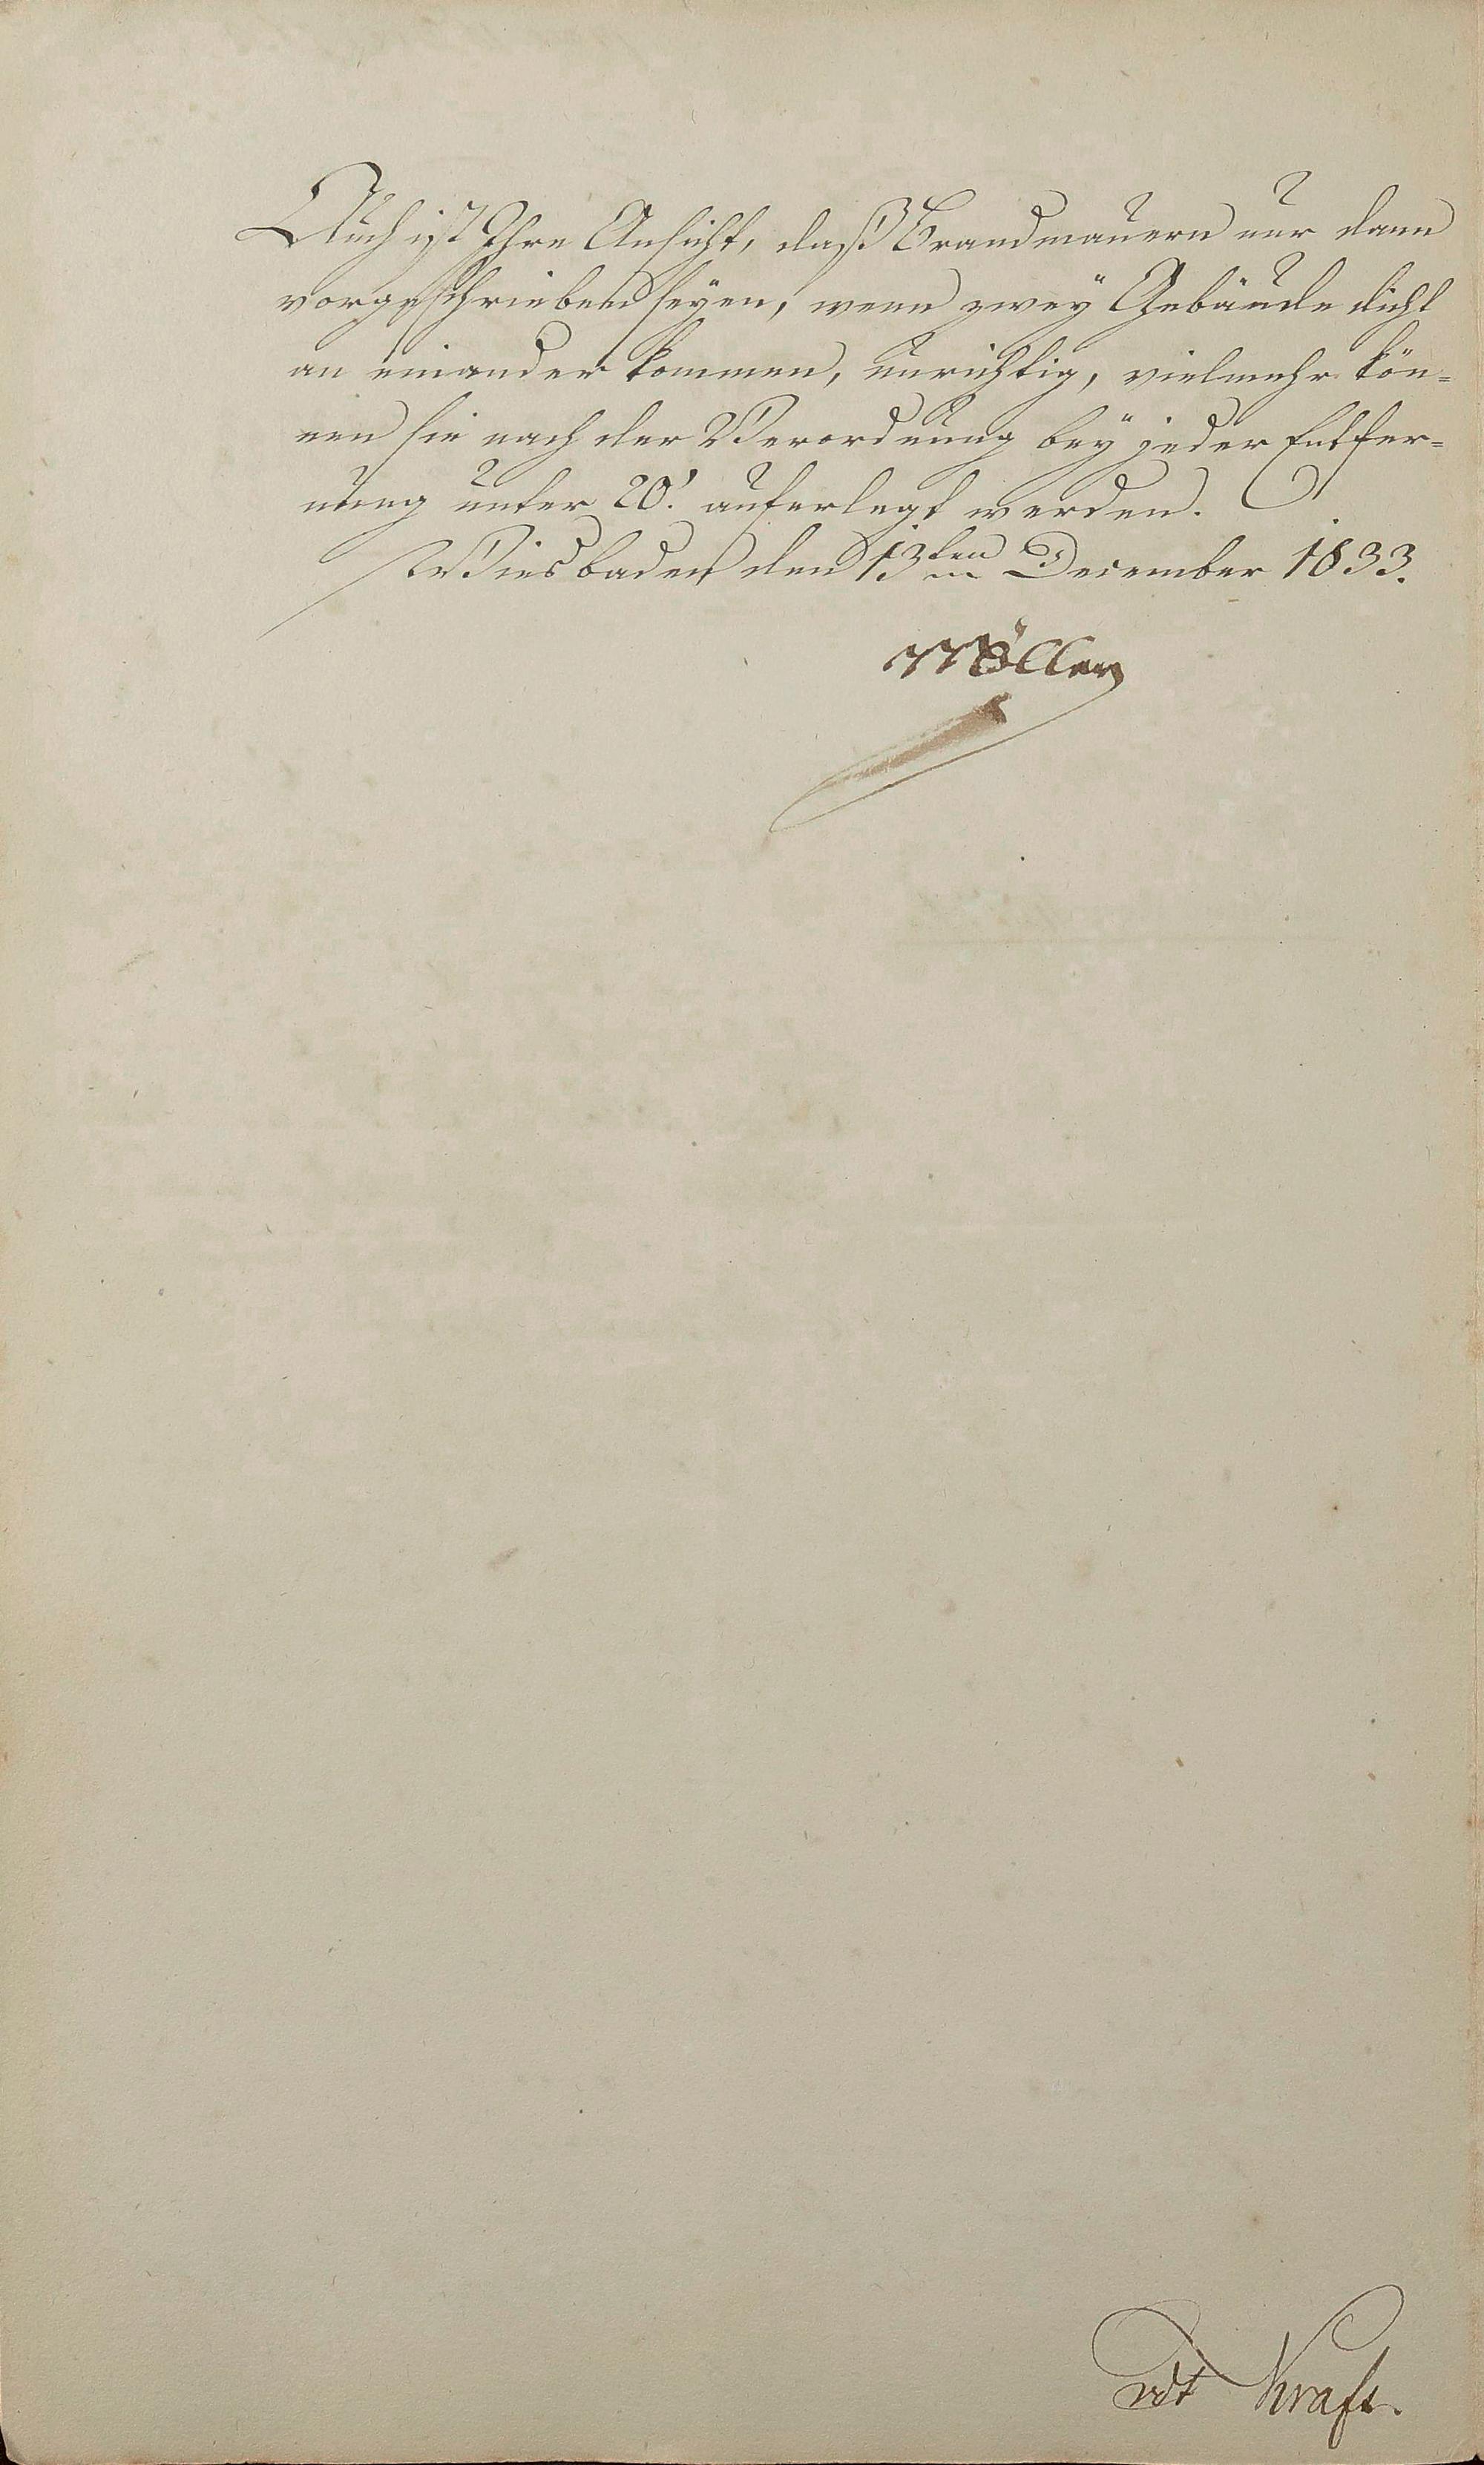 Auch ist Ihre Ansicht, daß Brandmauern nur dann
vorgeschrieben seyen, wenn zwey Gebäude dicht
an einander kommen, unrichtig, vielmehr kön=
nen sie nach der Verordnung bey jeder Entfer=
nung unter 20'. auferlegt werden.
Wiesbaden den 13ten December 1833.
Möller
vdt Kraft.